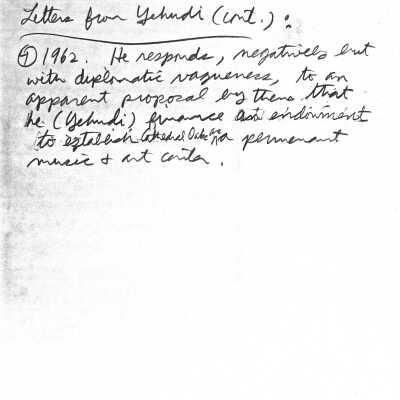 Letters from Yehudi (cont.):
④ 1962. He responds, negatively but
with diplomatic vagueness, to an
apparent proposal by them that
he (Yehudi) finance an endowment
to establish Cathedral Oaks as a permenant
music & art center.